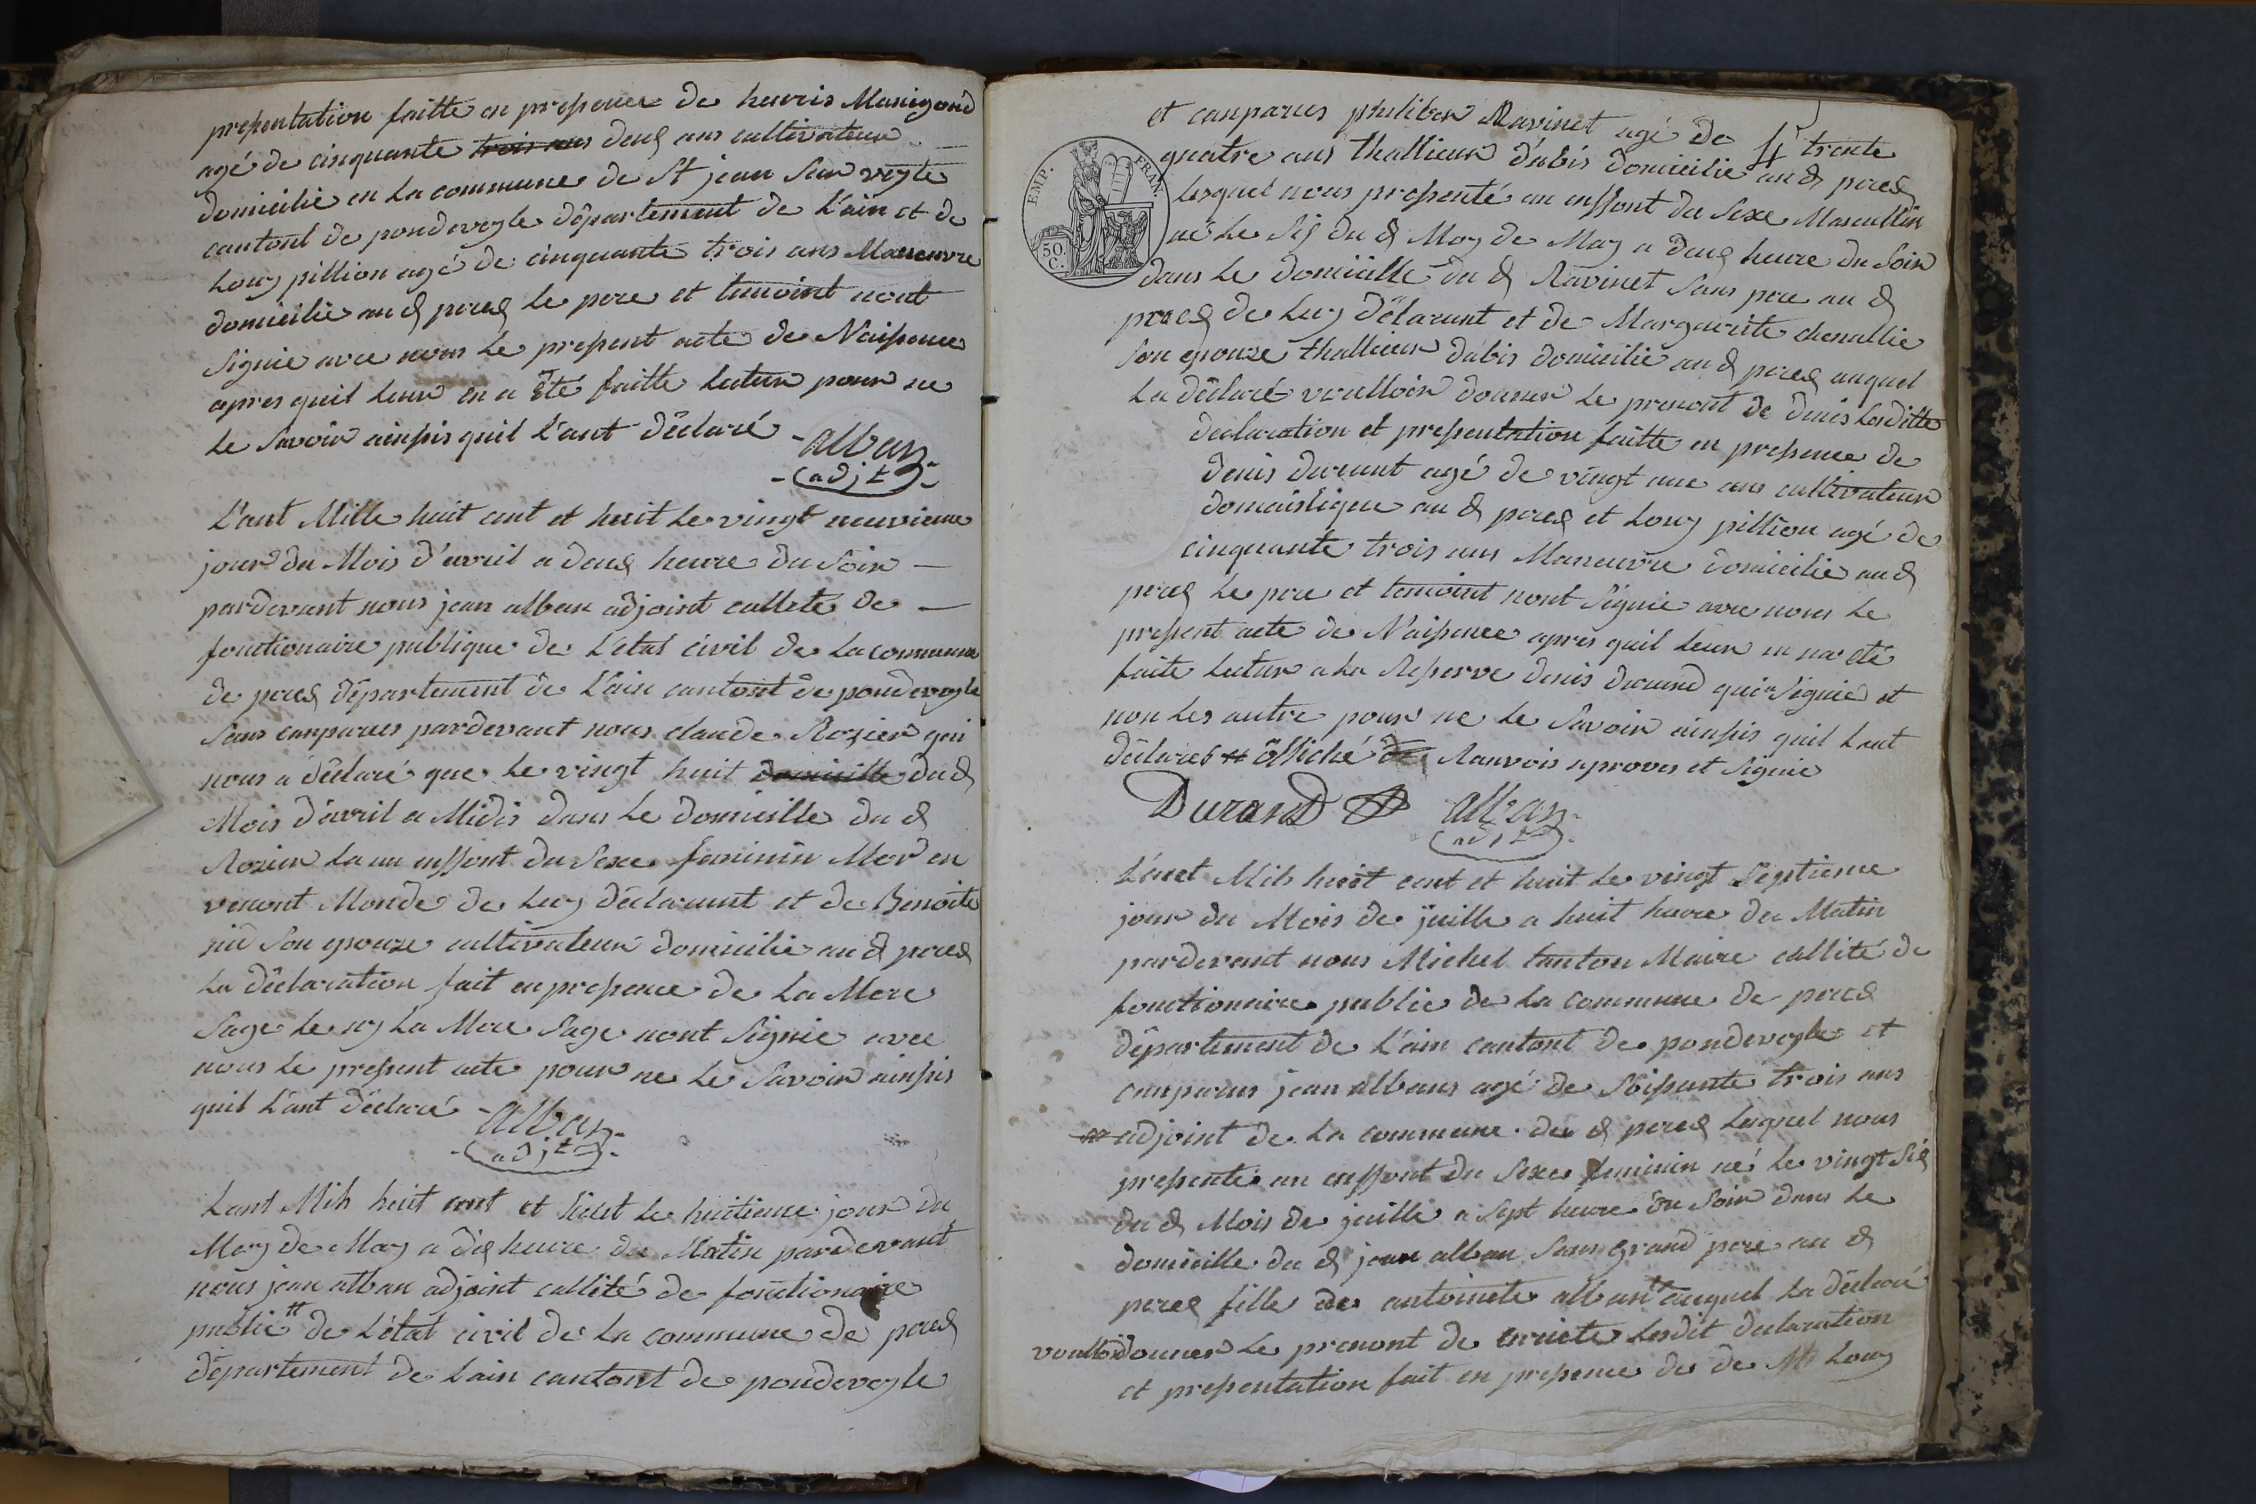 presentation faitte en presence de heuris Manigond
agé de cinquante trois ans deuξ ans cultivateur
domicilie en la commune de St jean sur veyle
cantont de pondeveyle département de l'ain et de
Louy pillion agé de cinquante trois ans Maneuvre
domicilie aud pereξ le pere et temoint nont
signie avec nous le present acte de Naisence
apres quil leur en a été faitte lectur pour ne
le savoir ainsis quil l'ant déclaré
alban
adjt
L'ant Mille huit cent et huit le vingt neuvieme
jour du Mois d'avril a deuξ heure du soir
pardevant nous jean alban adjoint callite de
fonctionaire publique de l'etat civil de la commune
de pereξ département de l'ain cantont de pondeveyle
sans conparus pardevant nous claude Rozier qui
nous a déclaré que le vingt huit domicille dud
Mois d'avril a Midis dans le domicille dud
Rozier la un enffont du sexe feminin Mor en
venent Monde de luy déclarant et de Benoite
son epouze cultivateur domicilie aud pereξ
la déclaration fait en presence de la Mere
sage le ny la Mere sage nont signie avec
nous le present acte pour ne le savoir ainsis
quil l'ant déclaré
alban
adjt
Lant Mih huit cent et huit le huitieme jour du
Moy de May a diξ heure du Matin pardevant
nous jean alban adjoint callité de fonctionaire
public de l'état civil de la commune de pereξ
département de lain cantont de pondeveyle
et conparus philiber Ravinet agé de trente
quatre ans thallieur d'abis domicilie aud pereξ
lesquel nous presenté un enffont du sexe Masculin
né le siξ dud Moy de May a deuξ heure du soir
dans le domicille dud Ravinet sans pere aud
pereξ de luy déclarant et de Marguerite chevallie
son epouze thallieur dabis domicilie aud pereξ auquel
la déclaré voulloir donner le prenont de denis lesditte
declaration et presentation faitte en presence de
denis durant agé de vingt une ans cultivateur
domaistique aud pereξ et Louy pillion agé de
cinquante trois ans Maneuvre domicilie aud
pereξ le pere et temoint nont signie avec nous le
present acte de Naisence apres quil leur en na été
faite lectur a la reserve denis durand qui a signie et
non les autre pour ne le savoir ainsis quil lant
déclares affiché Ranvois aprover et signie
Durand alban
adjt
L'ant Mih huit cent et huit le vingt septieme
jour du Mois de juille a huit heure du Matin
pardevant nous Michel tanton Maire callité de
fonctionaire public de la commune de pereξ
département de l'ain cantont de pondeveyle et
conparus jean albans agé de soisante trois ans
adjoint de la commune dud pereξ lesquel nous
presenté un enffont du sexe feminin né le vingt siξ
dud Mois de juille a sept heure du soir dans le
domicille dud jean alban sans grand pere aud
pereξ fille de antoinete alban auquel la déclaré
voulloir donner le prenont de lesdit declaration
et presentation fait en presence de de Louy